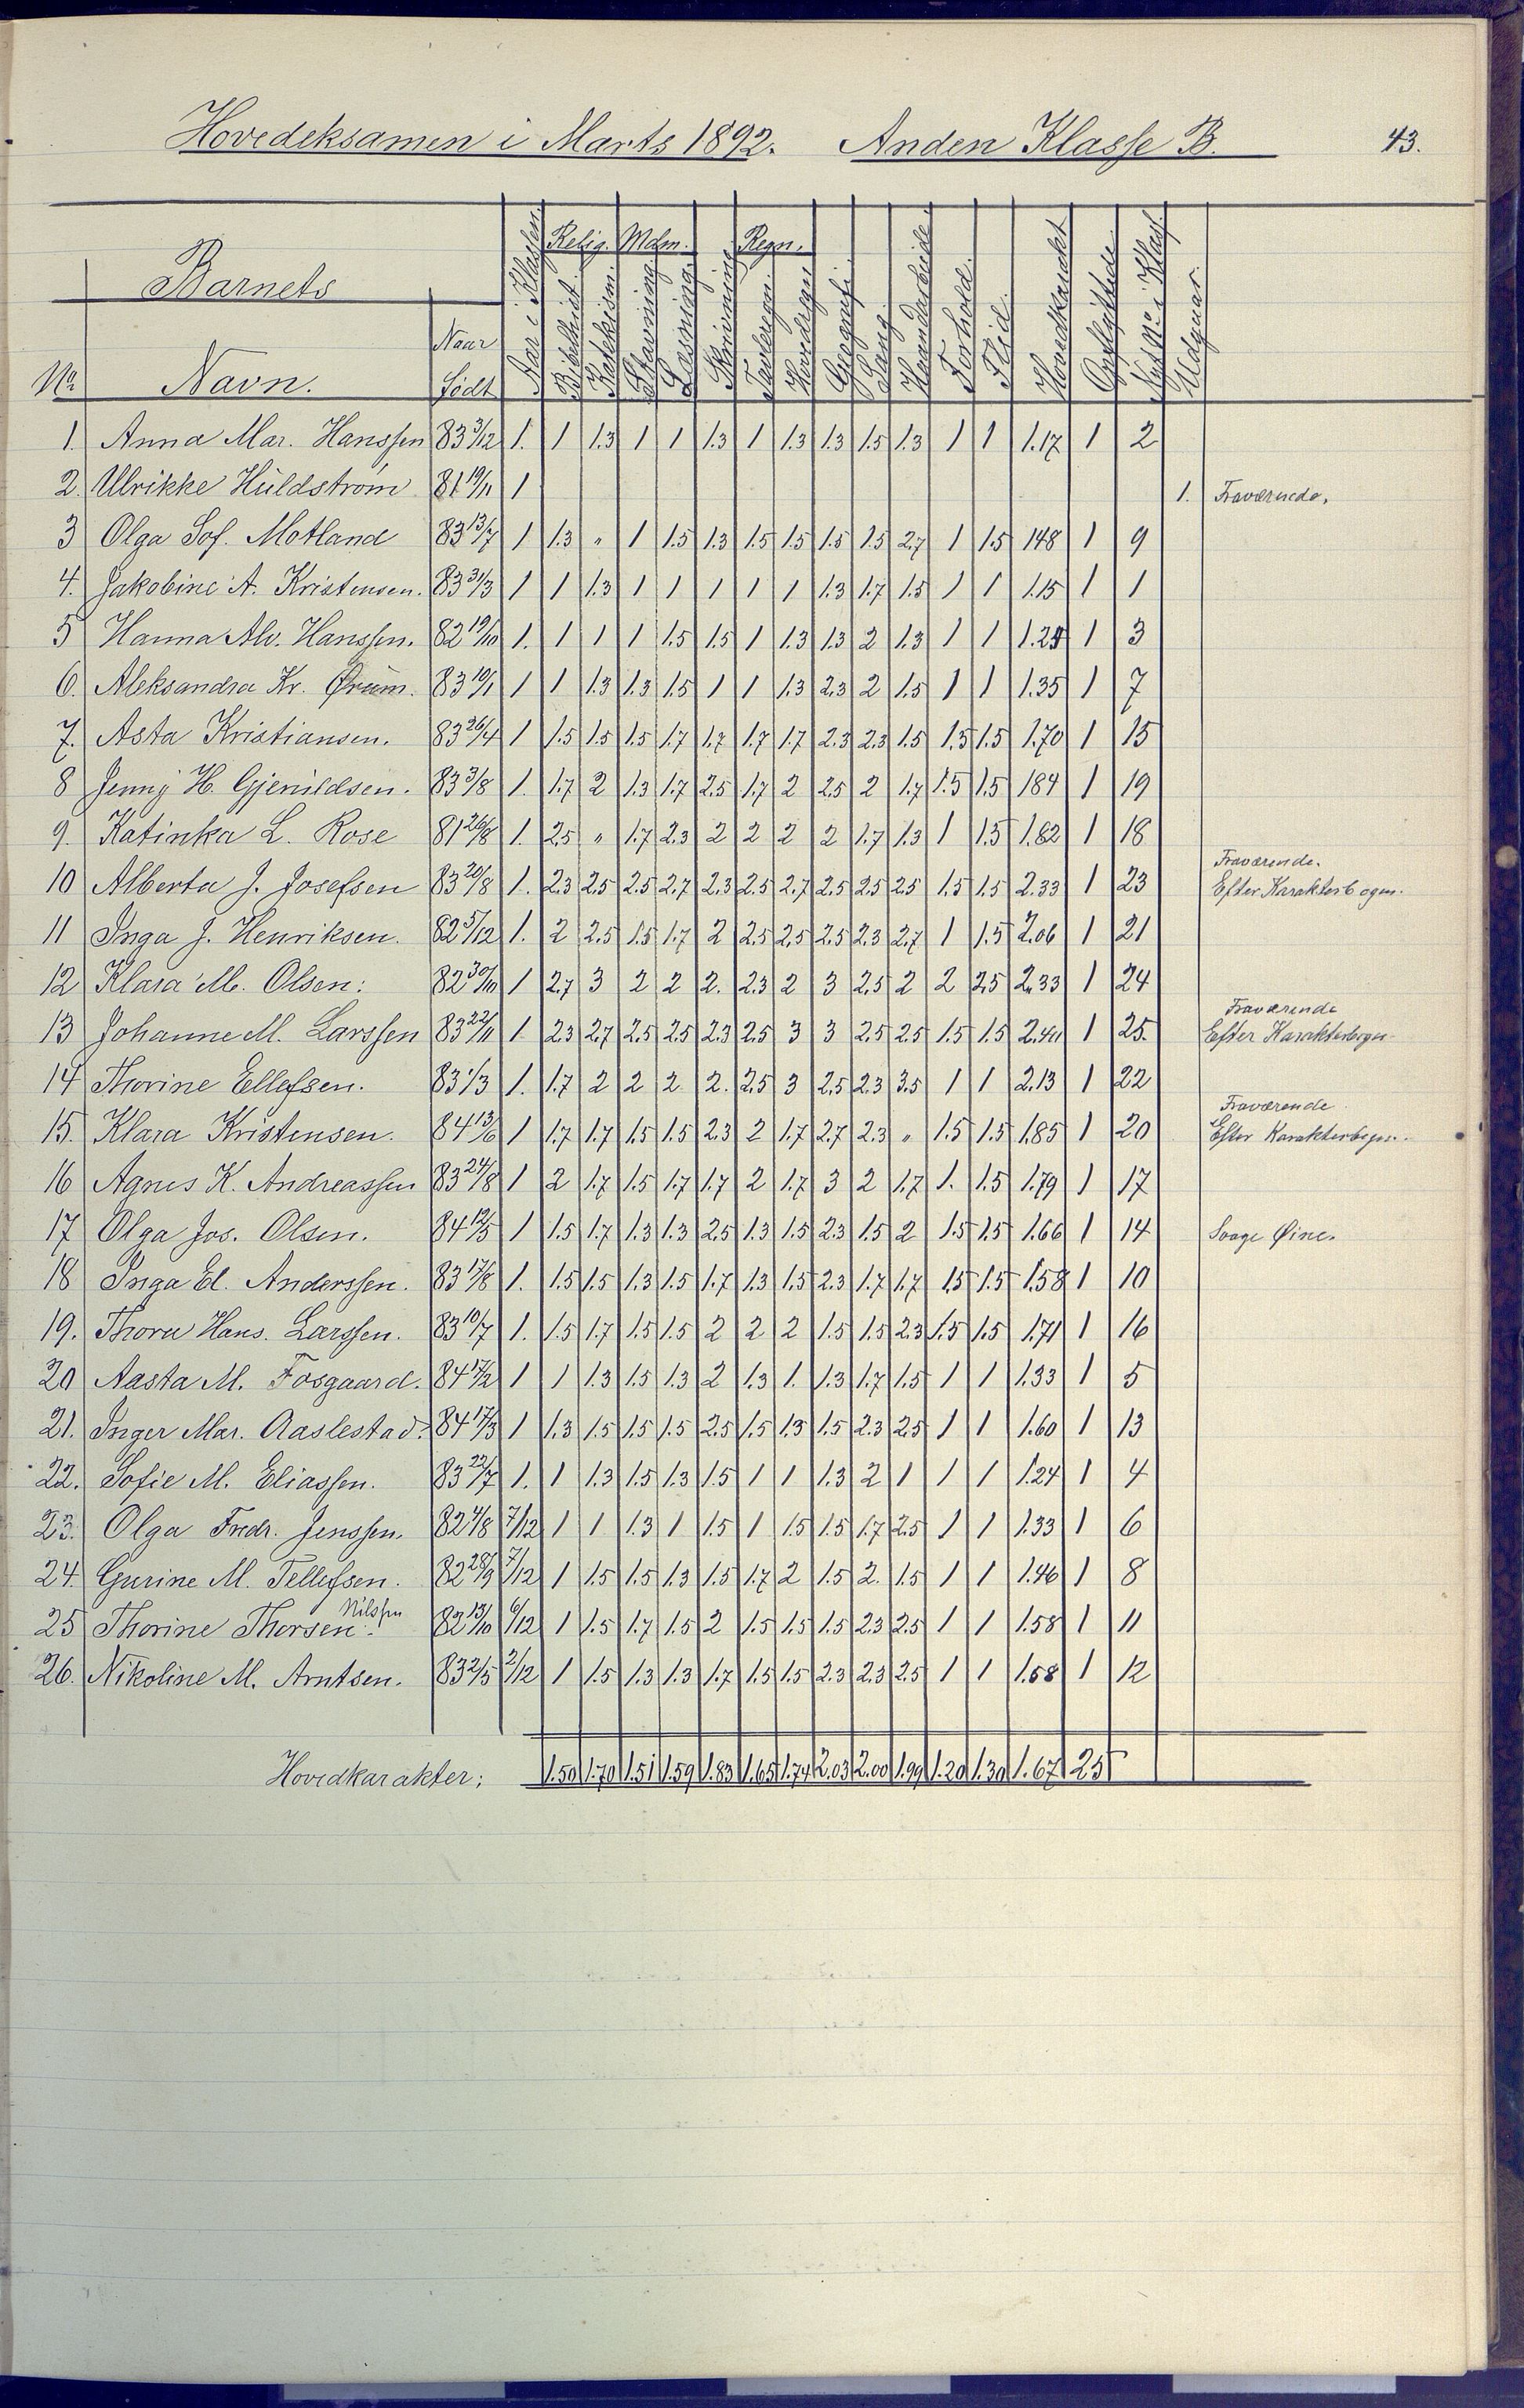 Hovedeksamen i Marts 1892. Anden Klasse B. 43.
Barnets
No. Navn. Naar Født Aar i Klassen. Relig. Bibelhist. Katekism. Mdm. Stavning Læsning. Skrivning Regn. Tavleregn. Hovedregn. Geografi. Sang. Haandarbeide. Forhold. Flid. Hovedkarakt. Opflyttede. Nyt No. i Klas. Udgaar.
1. Anna Mar. Hanssen 83 3/12 1. 1 1.3 1 1 1.3 1 1.3 1.3 1.5 1.3 1 1 1.17 1 2
2. Ulrikke Hüldstrøm 81 19/11 1 1. Fraværende.
3 Olga Sof. Motland 83 13/7 1 1.3 " 1 1.5 1.3 1.5 1.5 1.5 1.5 2.7 1 1.5 1.48 1 9
4. Jakobine A. Kristensen. 83 31/3 1 1 1.3 1 1 1 1 1 1.3 1.7 1.5 1 1 1.15 1 1
5 Hanna Alv. Hanssen. 82 19/10 1. 1 1 1 1.5 1.5 1 1.3 1.3 2 1.3 1 1 1.24 1 3
6. Aleksandra Kr. Ørum. 83 10/1 1 1 1.3 1.3 1.5 1 1 1.3 2.3 2 1.5 1 1 1.35 1 7
7. Asta Kristiansen. 83 26/4 1 1.5 1.5 1.5 1.7 1.7 1.7 1.7 2.3 2.3 1.5 1.5 1.5 1.70 1 15
8 Jenny H. Gjenildsen. 83 3/8 1. 1.7 2 1.3 1.7 2.5 1.7 2 2.5 2 1.7 1.5 1.5 1.84 1 19
9. Katinka L. Rose 81 26/8 1. 2.5 " 1.7 2.3 2 2 2 2 1.7 1.3 1 1.5 1.82 1 18
Fraværende.
10 Alberta J. Josefsen 83 20/8 1. 2.3 2.5 2.5 2.7 2.3 2.5 2.7 2.5 2.5 2.5 1.5 1.5 2.33 1 23 Efter Karakterbogen.
11 Inga J. Henriksen. 82 5/12 1. 2 2.5 1.5 1.7 2 2.5 2.5 2.5 2.3 2.7 1 1.5 2.06 1 21
12 Klara M. Olsen: 82 30/10 1 2.7 3 2 2 2. 2.3 2 3 2.5 2 2 2.5 2.33 1 24
Fraværende
13 Johanne M. Larssen 83 22/11 1. 2.3 2.7 2.5 2.5 2.3 2.5 3 3 2.5 2.5 1.5 1.5 2.40 1 25. Efter Karakterbogen
14 Thorine Ellefsen. 83 1/3 1. 1.7 2 2 2. 2. 2.5 3 2.5 2.3 3.5 1 1 2.13 1 22
Fraværende
15. Klara Kristensen. 84 13/6 1 1.7 1.7 1.5 1.5 2.3 2 1.7 2.7 2.3 " 1.5 1.5 1.85 1 20 Efter Karakterbogen.
16 Agnes K. Andreassen 83 24/8 1 2 1.7 1.5 1.7 1.7 2 1.7 3 2 1.7 1. 1.5 1.79 1 17
17 Olga Jos. Olsen. 84 12/5 1 1.5 1.7 1.3 1.3 2.5 1.3 1.5 2.3 1.5 2 1.5 1.5 1.66 1 14 Svage Øine.
18 Inga El. Anderssen. 83 17/8 1. 1.5 1.5 1.3 1.5 1.7 1.3 1.5 2.3 1.7 1.7 1.5 1.5 1.58 1 10
19. Thora Hans. Larssen. 83 10/7 1. 1.5 1.7 1.5 1.5 2 2 2 1.5 1.5 2.3 1.5 1.5 1.71 1 16
20 Aasta M. Fosgaard. 84 17/2 1 1 1.3 1.5 1.3 2 1.3 1. 1.3 1.7 1.5 1 1 1.33 1 5
21. Inger Mar. Aaslestad. 84 17/3 1 1.3 1.5 1.5 1.5 2.5 1.5 1.3 1.5 2.3 2.5 1 1 1.60 1 13
22. Sofie M. Eliassen. 83 22/7 1. 1 1.3 1.5 1.3 1.5 1 1 1.3 2 1 1 1 1.24 1 4
23. Olga Fredr. Jenssen. 82 4/8 7/12 1 1 1.3 1 1.5 1 1.5 1.5 1.7 2.5 1 1 1.33 1 6
24. Gurine M. Tellefsen. 82 28/9 7/12 1 1.5 1.5 1.3 1.5 1.7 2 1.5 2. 1.5 1 1 1.46 1 8
Nilssen
25 Thorine Thorsen. 82 13/10 6/12 1 1.5 1.7 1.5 2 1.5 1.5 1.5 2.3 2.5 1 1 1.58 1 11
26. Nikoline M. Arntsen. 83 2/5 2/12 1 1.5 1.3 1.3 1.7 1.5 1.5 2.3 2.3 2.5 1 1 1.58 1 12
Hovedkarakter: 1.50 1.70 1.51 1.59 1.83 1.65 1.74 2.03 2.00 1.99 1.20 1.30 1.67 25